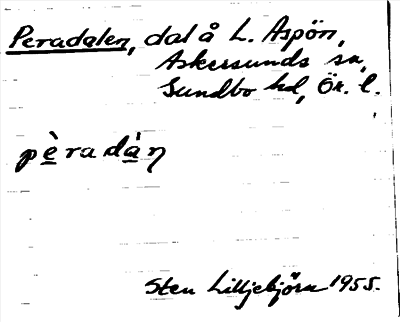 Peradalen, dal å L. Aspön,
Askersunds sn,
Sundbo hd, Ör. l.
pèradàn
Sten Lilljebjörn 1955.